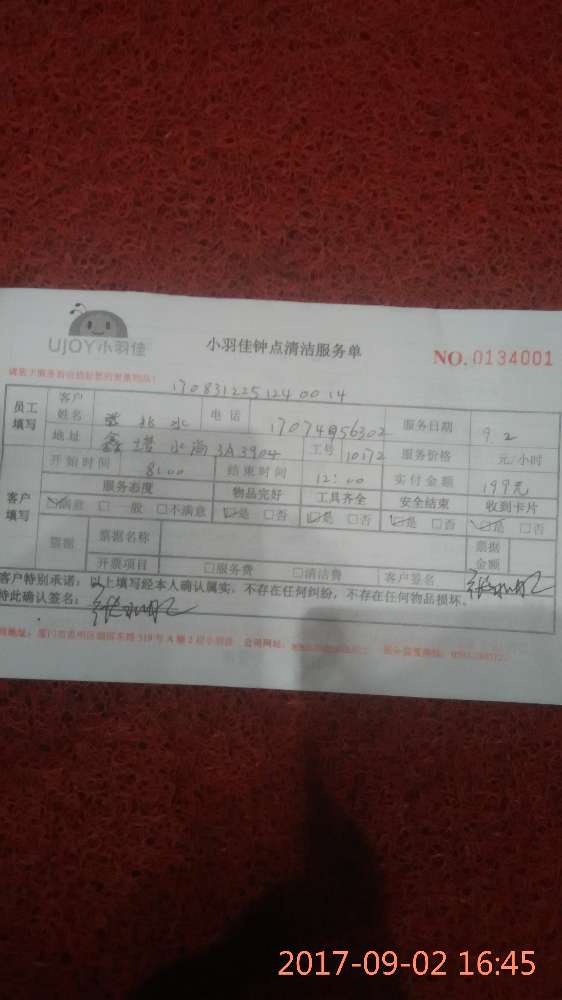 UJOY小羽佳
小羽佳钟点清洁服务单
NO. 0134001
17083122512400 14
员工填写 客户姓名 电话 服务日期 9.2
地址 鑫塔水尚3A3904 工号 10172 服务价格 元/小时
开始时间 8:00 结束时间 12:00 实付金额 199元
客户填写 服务态度 物品完好 工具齐全 安全结束 收到卡片
☑满意 □一般 □不满意 ☑是 □否 ☑是 □否 ☑是 □否 ☑是 □否
票据 票据名称 票据金额
开票项目 □服务费 □清洁费 客户签名
客户特别承诺：以上填写经本人确认属实，不存在任何纠纷，不存在任何物品损坏。
特此确认签名：
2017-09-02 16:45